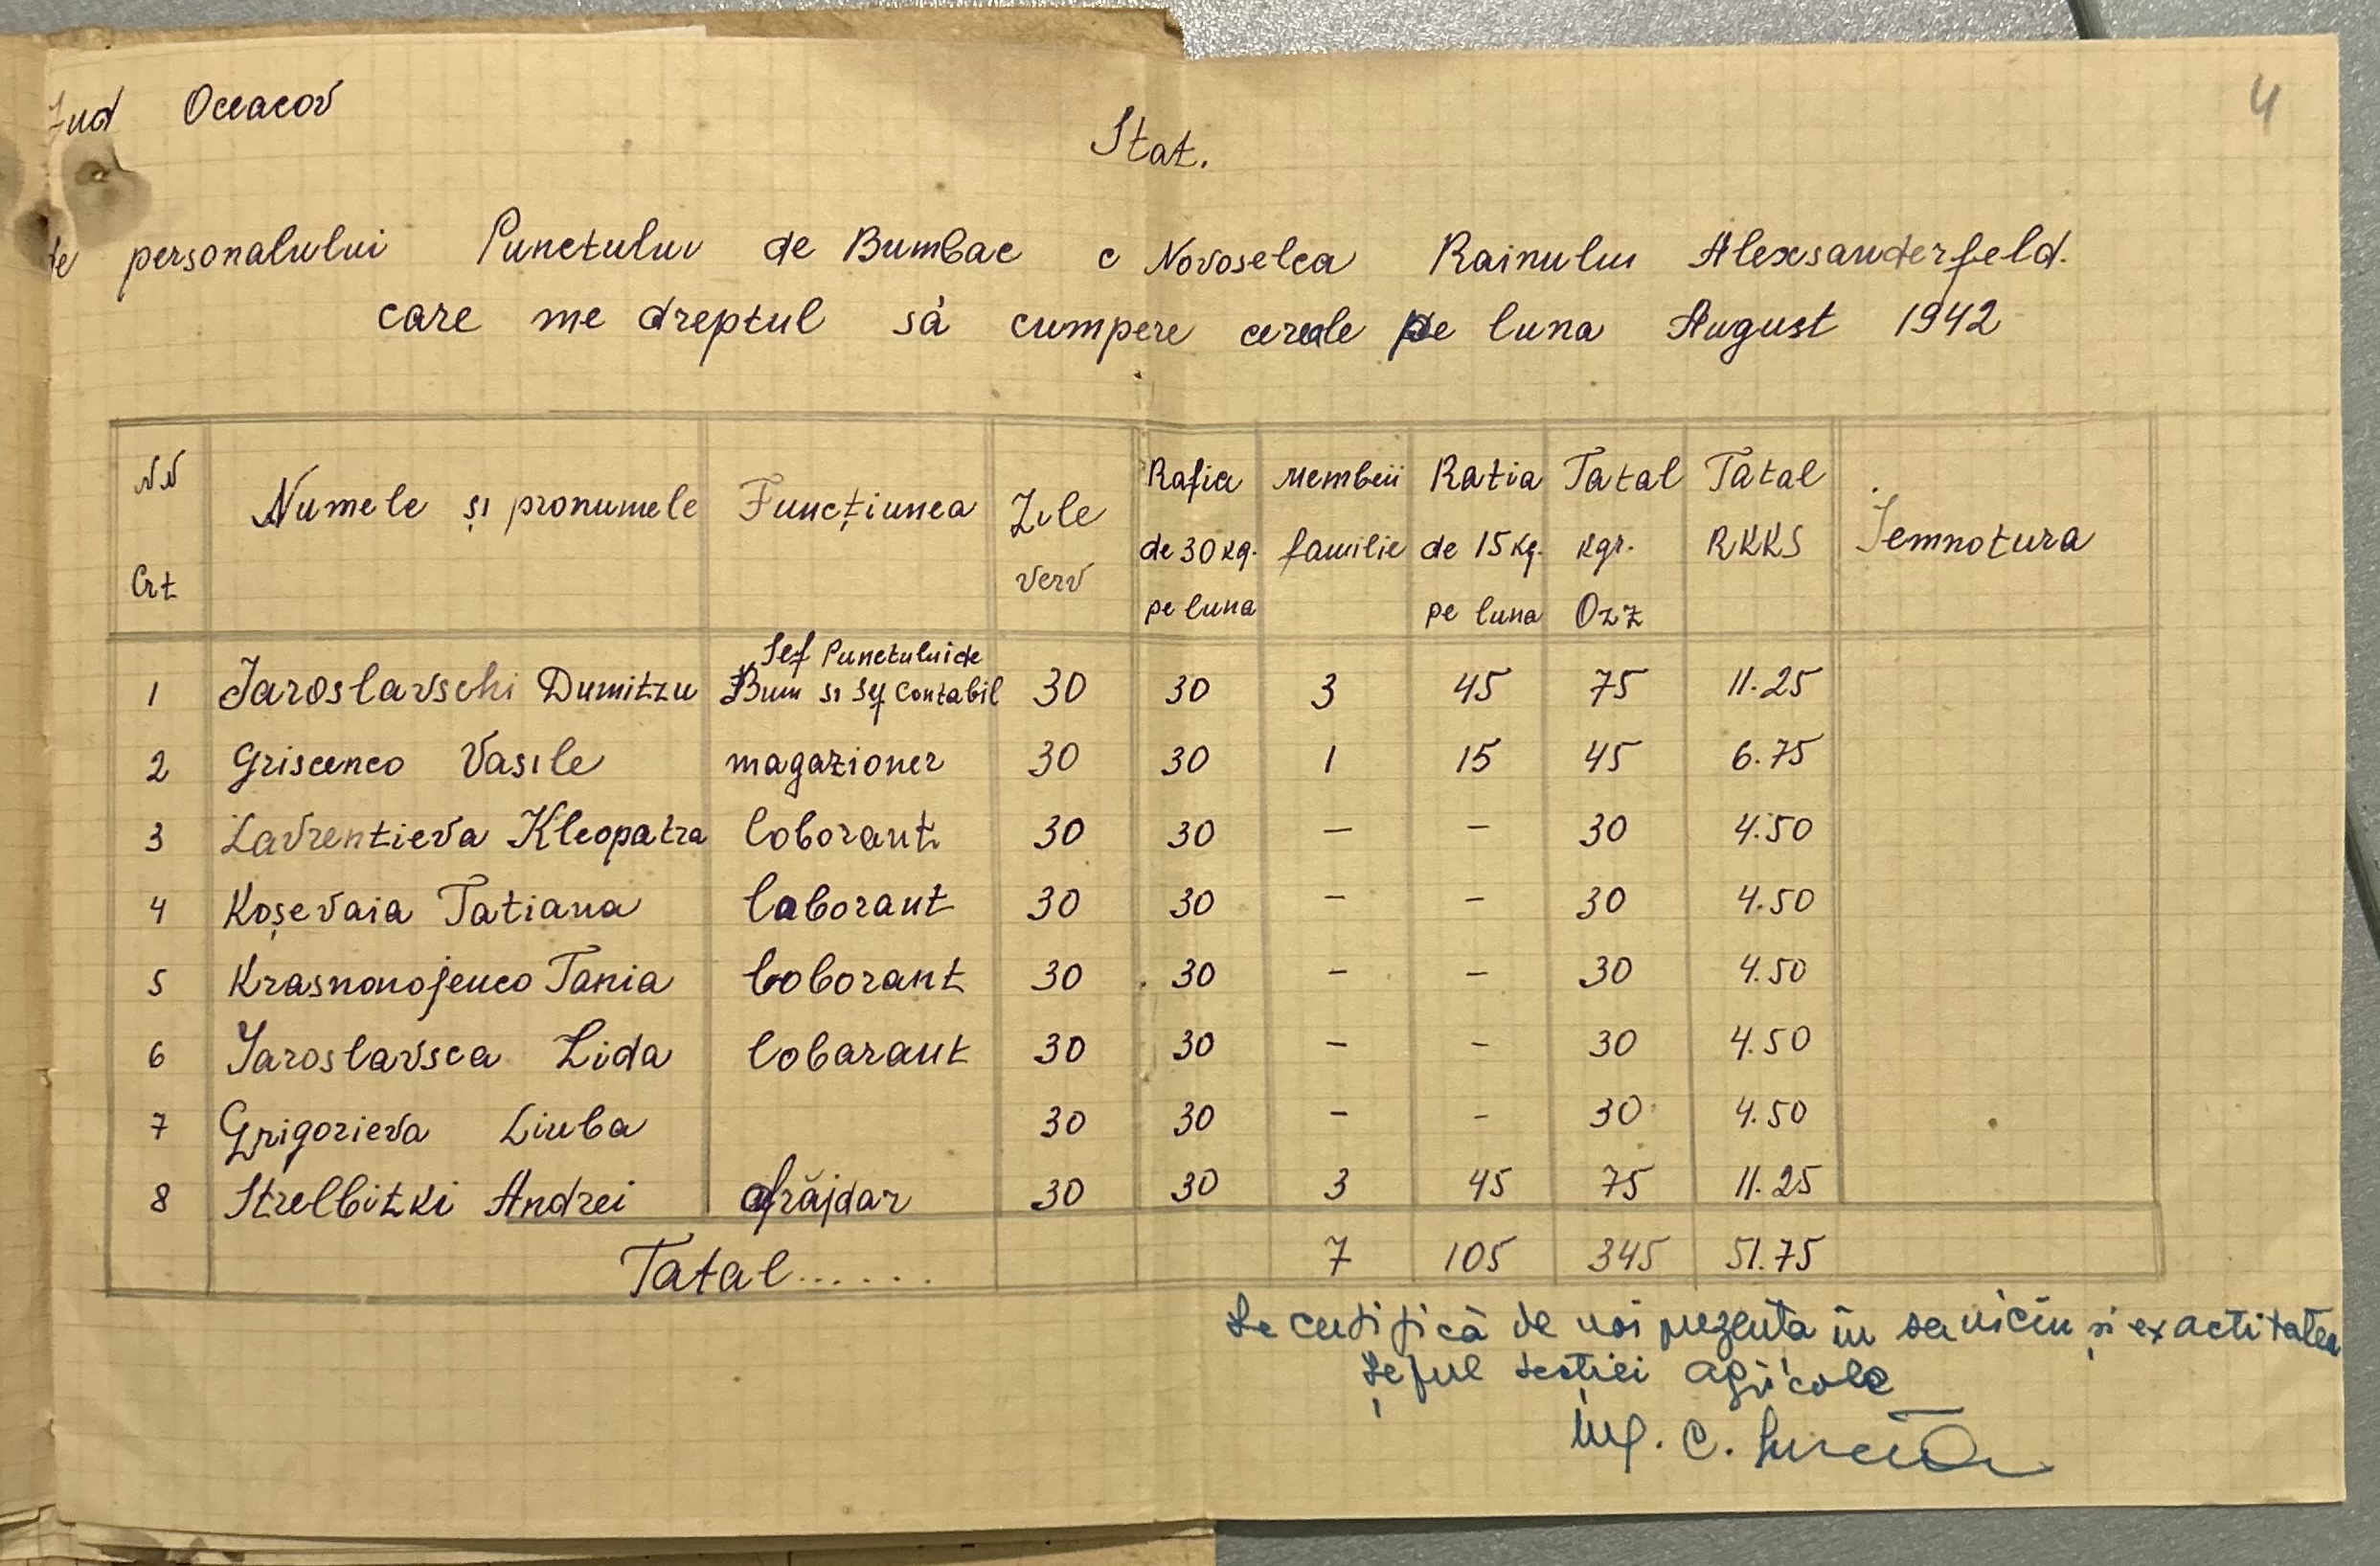 Jud Oceacov
4
Stat.
de personalului Punctului de Bumbac c Novoselca Rainului Alexsanderfeld.
care me dreptul să cumpere cereale pe luna August 1942
NN Crt | Numele și pronumele | Funcțiunea | Zile verv | Rafia de 30 kg. pe luna | membrii familie | Ratia de 15 kg. pe luna | Tatal kgr. Ozz | Tatal RKKS | Semnotura
1 Jaroslavschi Dumitru Sef Punctului de Bum si Sef Contabil 30 30 3 45 75 11.25
2 Griscenco Vasile magazioner 30 30 1 15 45 6.75
3 Lavrentieva Kleopatra loborant 30 30 – – 30 4.50
4 Koșevaia Tatiana laborant 30 30 – – 30 4.50
5 Krasnonojenco Tania loborant 30 30 – – 30 4.50
6 Jaroslavsca Lida lobarant 30 30 – – 30 4.50
7 Grigorieva Liuba 30 30 – – 30 4.50
8 Strelbitzki Andrei grăjdar 30 30 3 45 75 11.25
Tatal...... 7 105 345 51.75
Se certifică de noi prezenta în serviciu și exactitatea
Șeful secției agricole
Ing. C.